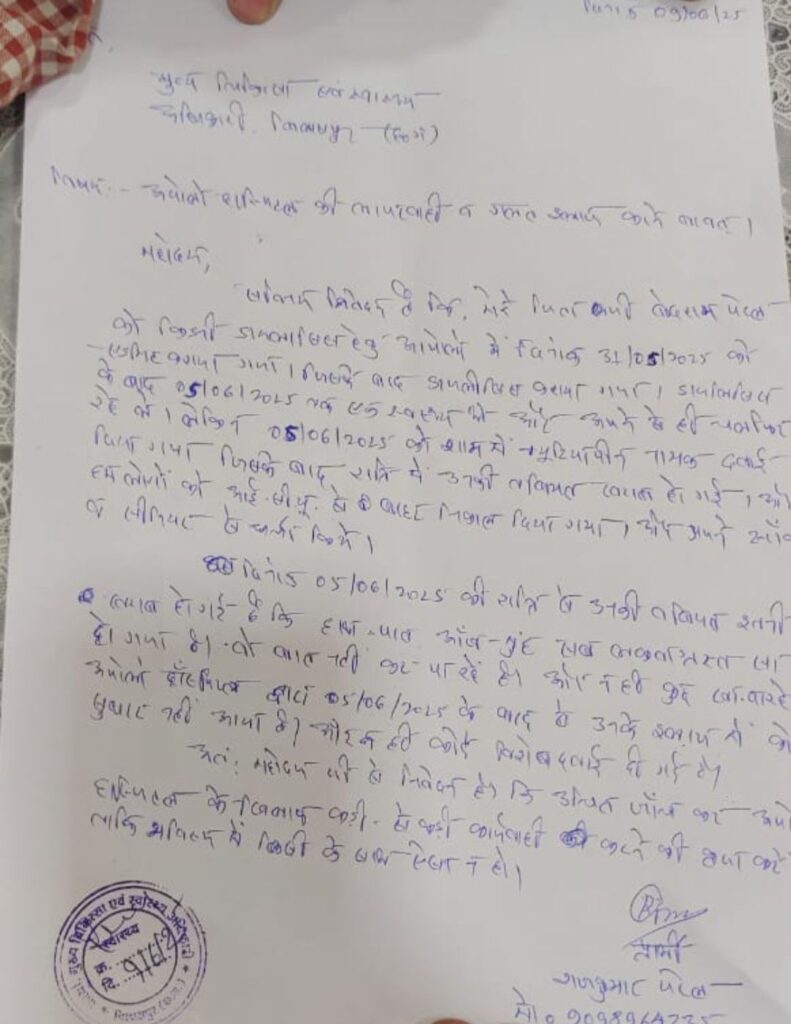 दिनांक 09/06/25
मुख्य चिकित्सा एवं स्वास्थ्य
अधिकारी, बिलासपुर (छ०ग०)
विषय:- अपोलो हास्पिटल की लापरवाही व गलत इलाज करने बाबत्।
महोदय,
सविनय निवेदन है कि, मेरे पिता श्री पटेल
को किडनी डायलासिस हेतु अपोलो में दिनांक 31/05/2025 को
एडमिट कराया गया। जिसके बाद डायलासिस कराया गया। डायलासिस
के बाद 05/06/2025 तक स्वस्थ्य थे और अपने से ही चल फिर
रहे थे। लेकिन 05/06/2025 को शाम में नामक दवाई
दिया गया जिसके बाद रात्रि में उनकी तबियत खराब हो गई, और
हम लोगों को आई.सी.यू. से बाहर निकाल दिया गया, और अपने
व सीनियर से चर्चा किये।
दिनांक 05/06/2025 की रात्रि से उनकी तबियत इतनी
खराब हो गई है कि हाथ-पांव आँख-मुंह सब लकवाग्रस्त सा
हो गया है। वो बात नहीं कर पा रहे है। और न ही कुछ खा पा रहे
अपोलो हॉस्पिटल द्वारा 05/06/2025 के बाद से उनके इलाज में को
सुधार नहीं आया है। और न ही कोई विशेष दवाई दी गई है।
अतः महोदय जी से निवेदन है। कि उचित जाँच कर अपो
हास्पिटल के खिलाफ कड़ी से कड़ी कार्यवाही करने की कृपा करें
ताकि भविष्य में किसी के साथ ऐसा न हो।
प्रार्थी
राजकुमार पटेल
मो० 9098964225
मुख्य चिकित्सा एवं स्वास्थ्य अधिकारी
स्वास्थ्य
क्र.
दि. 9/6/25
बिलासपुर (छ.ग.)